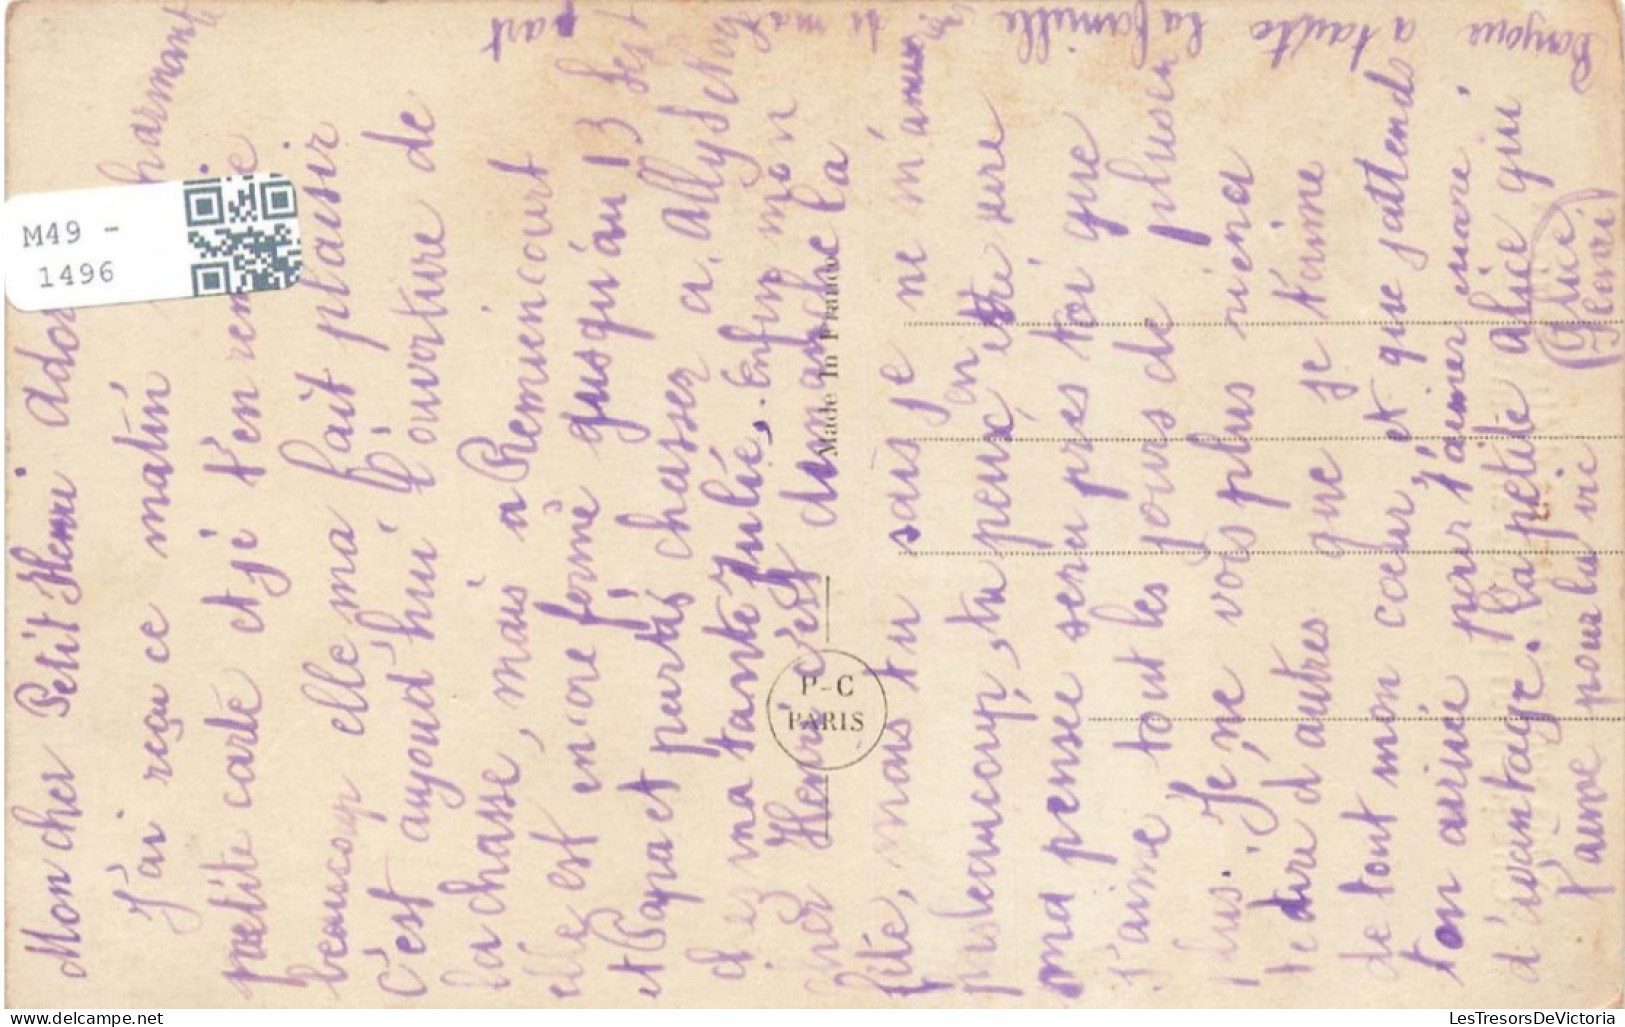 Mon cher Petit Henri Ador
J'ai reçu ce matin harmante
petite carte et je t'en reme ie
beaucoup elle ma fait plaisir
c'est aujourd'hui l'ouverture de
la chasse, mais a Remiencourt
elle est encore fermé jusqu'au 13 Sept
et Papa et partis chasser a. Ally S/ Noye
chez ma tante Julie. Enfin mon
cher Henri c'est dimanche la
fête, mais tu sais je ne m'amuse
pas beaucoup, tu peux en être sure
ma pensée sera près toi que
j'aime tout les jours de plus en
plus. Je, ne vois plus rien a
te dire d'autres que je t'aime
de tout mon cœur, et que j'attends
ton arivé pour t'aimer encore
d'avantage. Ta petite Alice qui
t'aime pour la vie
(Alice,
Henri)
Bonjour a toute la famille de ma
part
M49 -
1496
Made in France
P-C
PARIS
delcampe.net website
LesTresorsDeVictoria